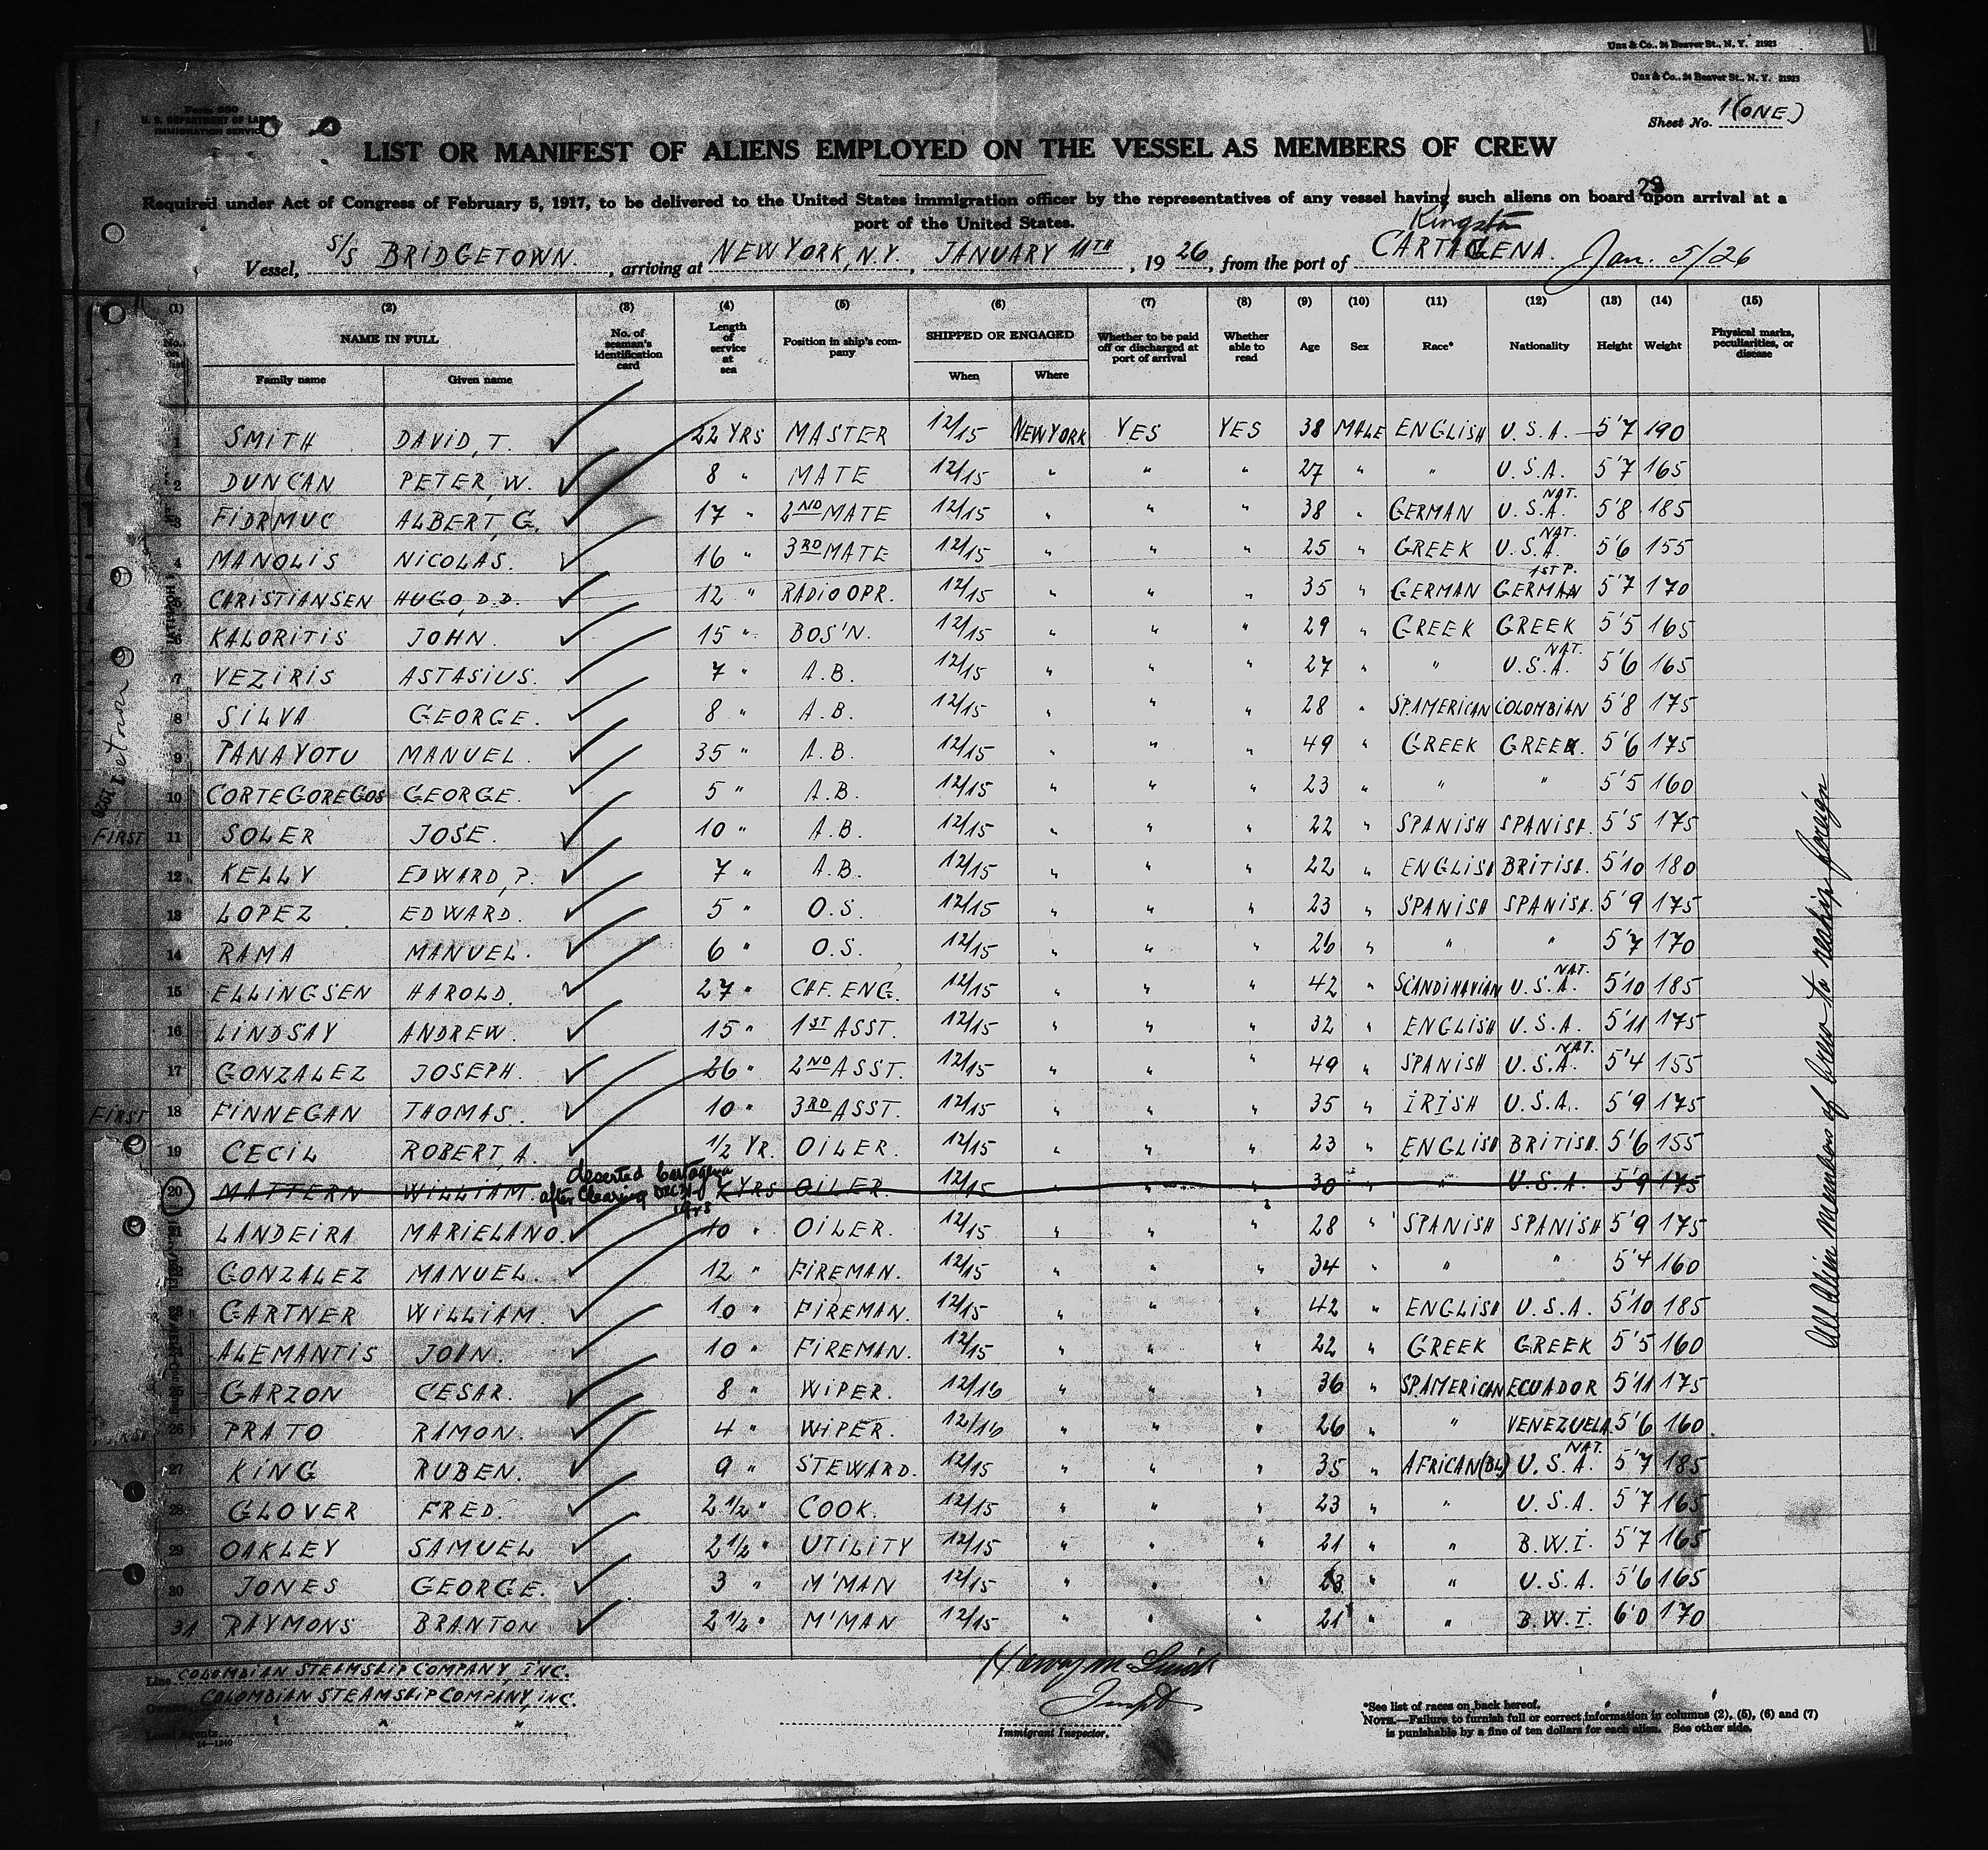 Unz & Co., 24 Beaver St., N. Y. 21923
Unz & Co., 24 Beaver St., N. Y. 21923
Form 680
U. S. DEPARTMENT OF LABOR
IMMIGRATION SERVICE
Sheet No. 1 (ONE)
LIST OR MANIFEST OF ALIENS EMPLOYED ON THE VESSEL AS MEMBERS OF CREW
29
Required under Act of Congress of February 5, 1917, to be delivered to the United States immigration officer by the representatives of any vessel having such aliens on board upon arrival at a
port of the United States.
Kingston
Vessel, S/S BRIDGETOWN. , arriving at NEW YORK, N.Y. , JANUARY 11TH , 19 26, from the port of CARTAGENA. Jan. 5/26
(1) (2) (3) (4) (5) (6) (7) (8) (9) (10) (11) (12) (13) (14) (15)
No. on list NAME IN FULL Family name Given name No. of seaman's identification card Length of service at sea Position in ship's company SHIPPED OR ENGAGED When Where Whether to be paid off or discharged at port of arrival Whether able to read Age Sex Race* Nationality Height Weight Physical marks, peculiarities, or disease
1 SMITH DAVID, T. 22 YRS MASTER 12/15 NEW YORK YES YES 38 MALE ENGLISH U.S.A. 5'7 190
2 DUNCAN PETER, W. 8 " MATE 12/15 " " " 27 " " U.S.A. 5'7 165
3 FIDRMUC ALBERT, G. 17 " 2ND MATE 12/15 " " " 38 " GERMAN U.S.A. NAT. 5'8 185
4 MANOLIS NICOLAS. 16 " 3RD MATE 12/15 " " " 25 " GREEK U.S.A. NAT. 5'6 155
5 CHRISTIANSEN HUGO, D.D. 12 " RADIO OPR. 12/15 " " " 35 " GERMAN GERMAN 1ST P. 5'7 170
6 KALORITIS JOHN. 15 " BOS'N. 12/15 " " " 29 " GREEK GREEK 5'5 165
7 VEZIRIS ASTASIUS. 7 " A.B. 12/15 " " " 27 " " U.S.A. NAT. 5'6 165
8 SILVA GEORGE. 8 " A.B. 12/15 " " " 28 " SP.AMERICAN COLOMBIAN 5'8 175
9 PANAYOTU MANUEL. 35 " A.B. 12/15 " " " 49 " GREEK GREEK. 5'6 175
10 CORTEGOREGOS GEORGE. 5 " A.B. 12/15 " " " 23 " " " 5'5 160
FIRST 11 SOLER JOSE. 10 " A.B. 12/15 " " " 22 " SPANISH SPANISH. 5'5 175
12 KELLY EDWARD, P. 7 " A.B. 12/15 " " " 22 " ENGLISH BRITISH. 5'10 180
13 LOPEZ EDWARD. 5 " O.S. 12/15 " " " 23 " SPANISH SPANISH. 5'9 175
14 RAMA MANUEL. 6 " O.S. 12/15 " " " 26 " " " 5'7 170
15 ELLINGSEN HAROLD. 27 " CHF. ENG. 12/15 " " " 42 " SCANDINAVIAN U.S.A. NAT. 5'10 185
16 LINDSAY ANDREW. 15 " 1ST ASST. 12/15 " " " 32 " ENGLISH U.S.A. 5'11 175
17 GONZALEZ JOSEPH. 26 " 2ND ASST. 12/15 " " " 49 " SPANISH U.S.A. NAT. 5'4 155
FIRST 18 FINNEGAN THOMAS. 10 " 3RD ASST. 12/15 " " " 35 " IRISH U.S.A. 5'9 175
19 CECIL ROBERT, A. 1/2 YR. OILER. 12/15 " " " 23 " ENGLISH BRITISH. 5'6 155
deserted Cartagena
20 MATTERN WILLIAM. after clearing DEC 31st 1925 7 YRS OILER. 12/15 " " " 30 " " U.S.A. 5'9 175
21 LANDEIRA MARIELANO. 10 " OILER. 12/15 " " " 28 " SPANISH SPANISH 5'9 175
22 GONZALEZ MANUEL. 12 " FIREMAN. 12/15 " " " 34 " " " 5'4 160
23 GARTNER WILLIAM. 10 " FIREMAN. 12/15 " " " 42 " ENGLISH U.S.A. 5'10 185
24 ALEMANTIS JOHN. 10 " FIREMAN. 12/15 " " " 22 " GREEK GREEK 5'5 160
25 GARZON CESAR. 8 " WIPER. 12/16 " " " 36 " SP.AMERICAN ECUADOR 5'11 175
FIRST 26 PRATO RAMON. 4 " WIPER. 12/16 " " " 26 " " VENEZUELA 5'6 160
27 KING RUBEN. 9 " STEWARD. 12/15 " " " 35 " AFRICAN(BL) U.S.A. NAT. 5'7 185
28 GLOVER FRED. 2 1/2 " COOK. 12/15 " " " 23 " " U.S.A. 5'7 165
29 OAKLEY SAMUEL 2 1/2 " UTILITY 12/15 " " " 21 " " B.W.I. 5'7 165
30 JONES GEORGE. 3 " M'MAN 12/15 " " " 23 " " U.S.A. 5'6 165
31 RAYMONS BRANTON 2 1/2 " M'MAN 12/15 " " " 21 " " B.W.I. 6'0 170
All Alien members of Crew to reship foreign
Line COLOMBIAN STEAMSHIP COMPANY, INC.
Owners COLOMBIAN STEAMSHIP COMPANY, INC.
Local Agents " " "
14—1240
Immigrant Inspector.
*See list of races on back hereof.
NOTE.—Failure to furnish full or correct information in columns (2), (5), (6) and (7)
is punishable by a fine of ten dollars for each alien. See other side.